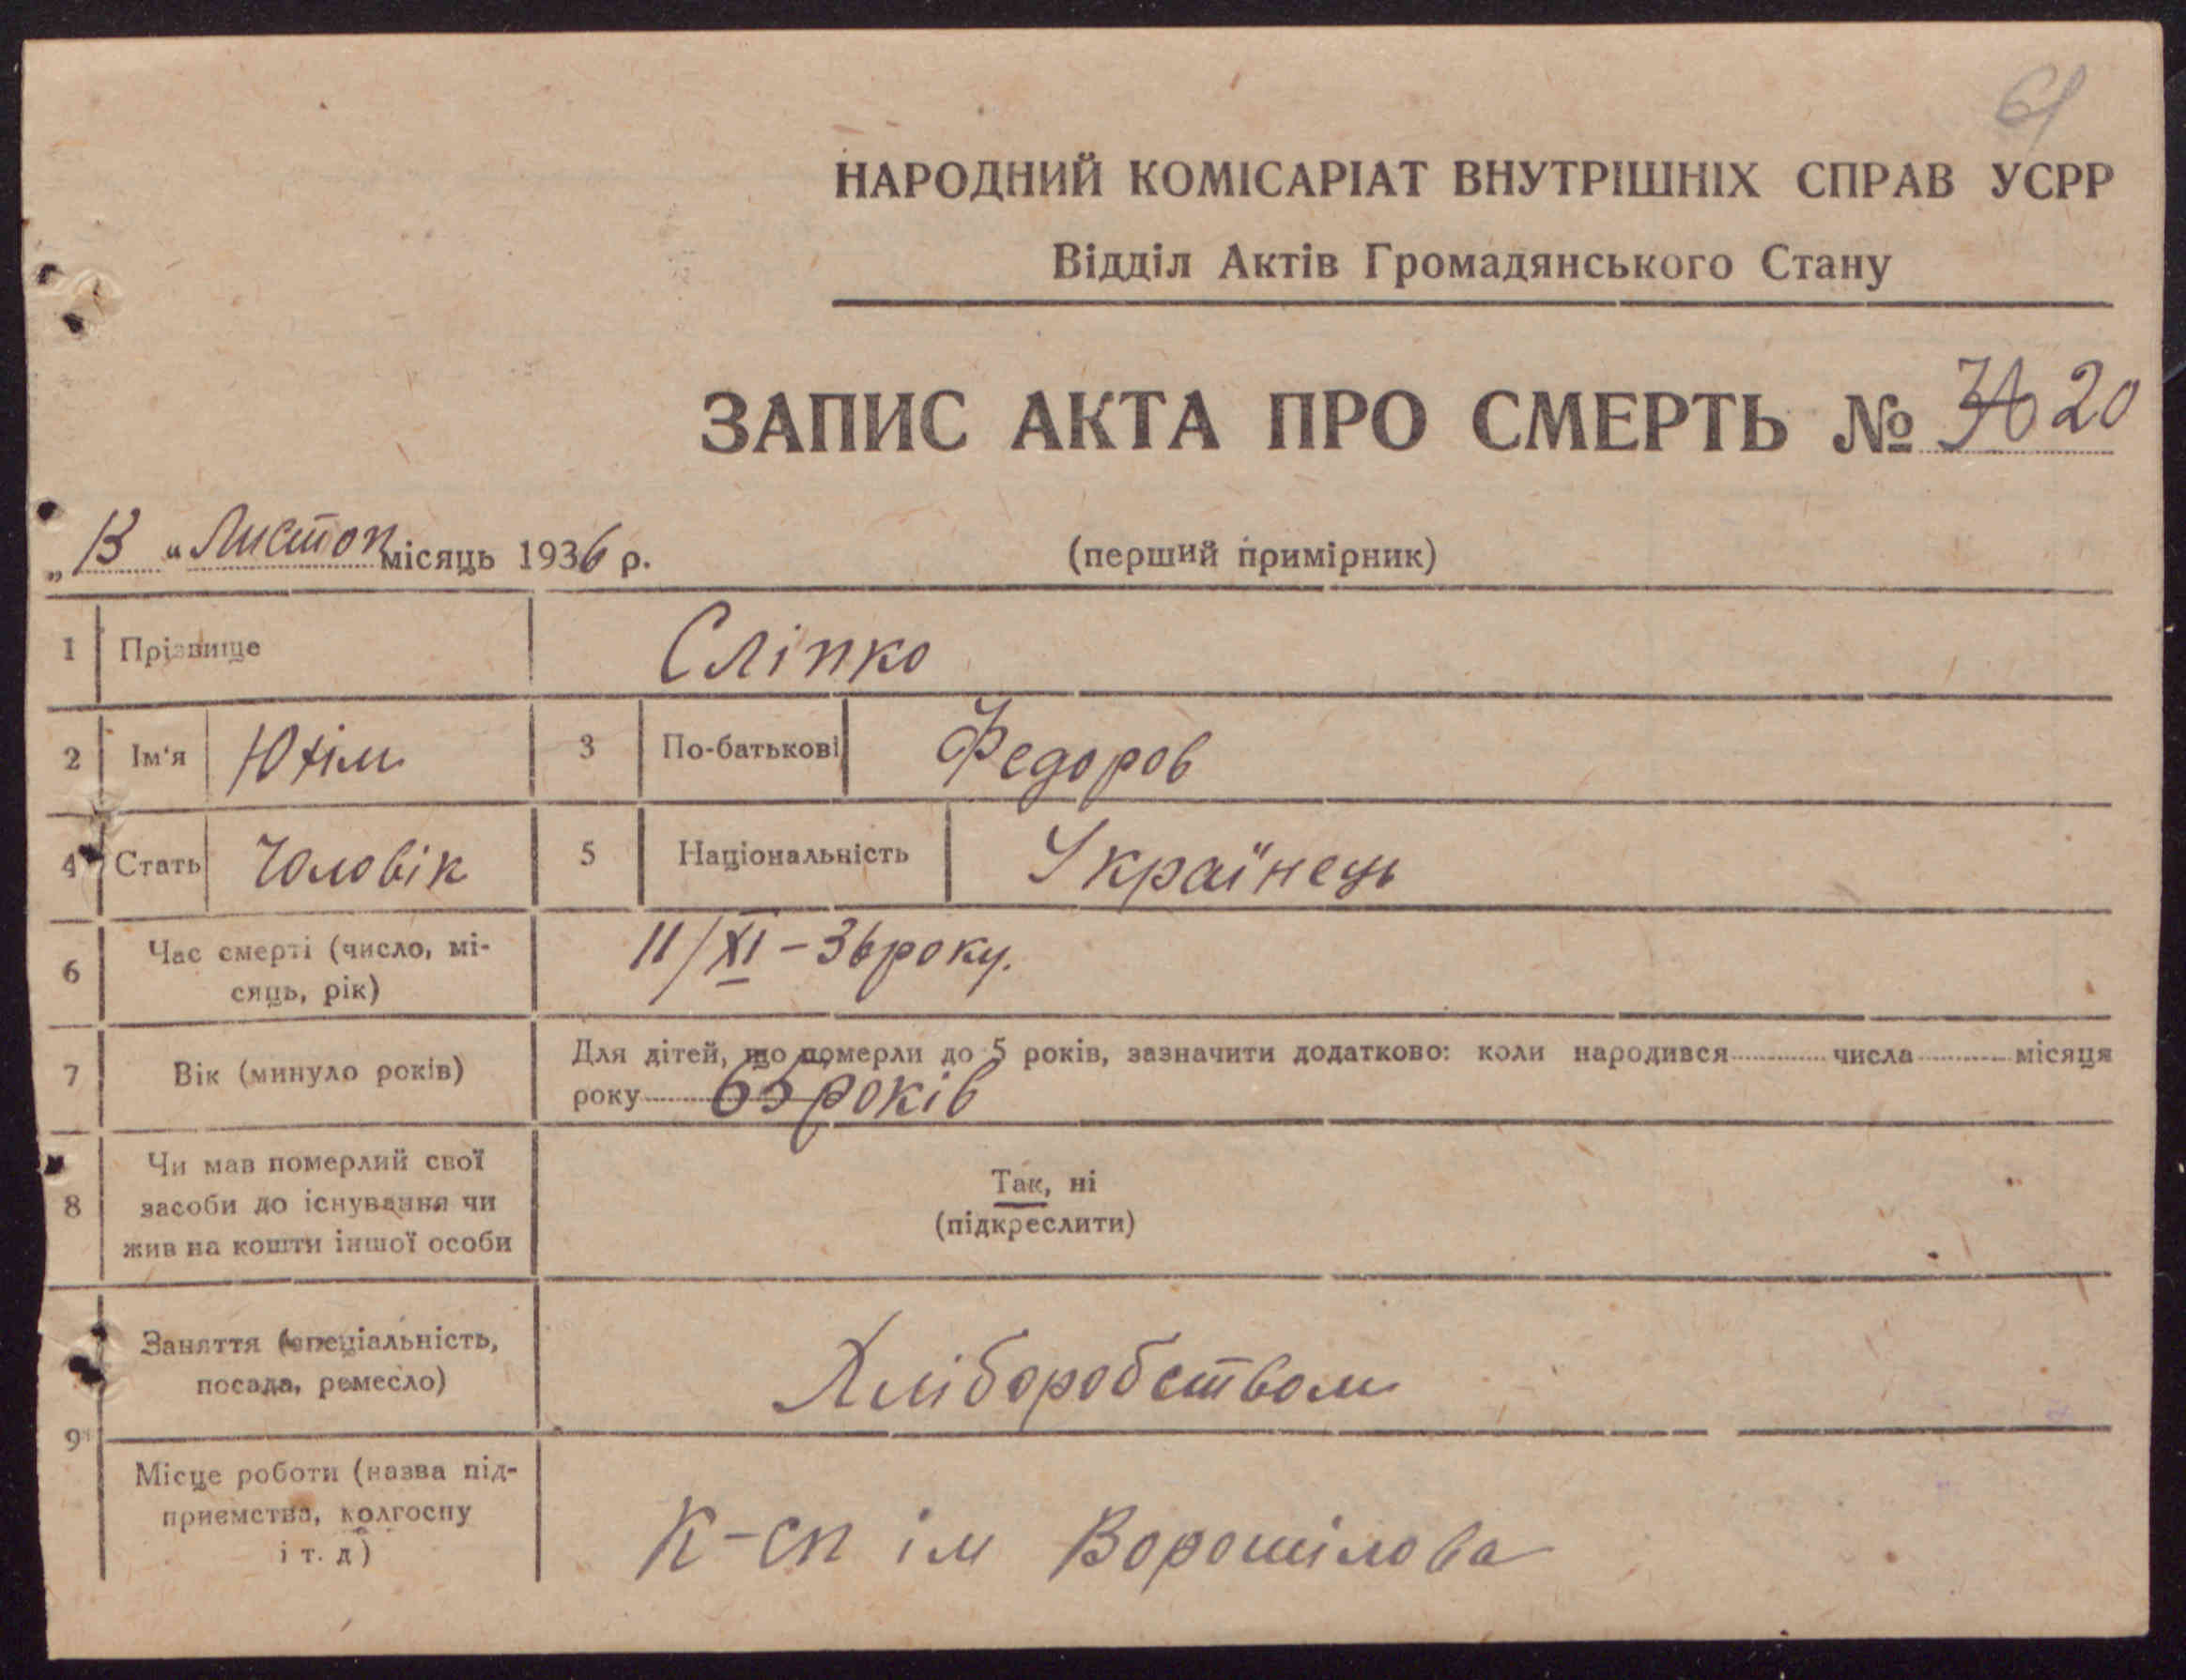 61
НАРОДНИЙ КОМІСАРІАТ ВНУТРІШНІХ СПРАВ УСРР
Відділ Актів Громадянського Стану
ЗАПИС АКТА ПРО СМЕРТЬ № 20
„13“ Листоп місяць 1936 р.
(перший примірник)
1 Прізвище Сліпко
2 Ім'я Юхім 3 По-батькові Федоров
4 Стать Чоловік 5 Національність Українець
6 Час смерті (число, мі-
сяць, рік) 11/XI – 36 року.
7 Вік (минуло років) Для дітей, що померли до 5 років, зазначити додатково: коли народився числа місяця
року 65 років
8 Чи мав померлий свої
засоби до існування чи
жив на кошти іншої особи
Так, ні
(підкреслити)
9 Заняття (спеціальність,
посада, ремесло) Хліборобством
Місце роботи (назва під-
приємства, колгоспу
і т. д) К-сп ім Ворошілова